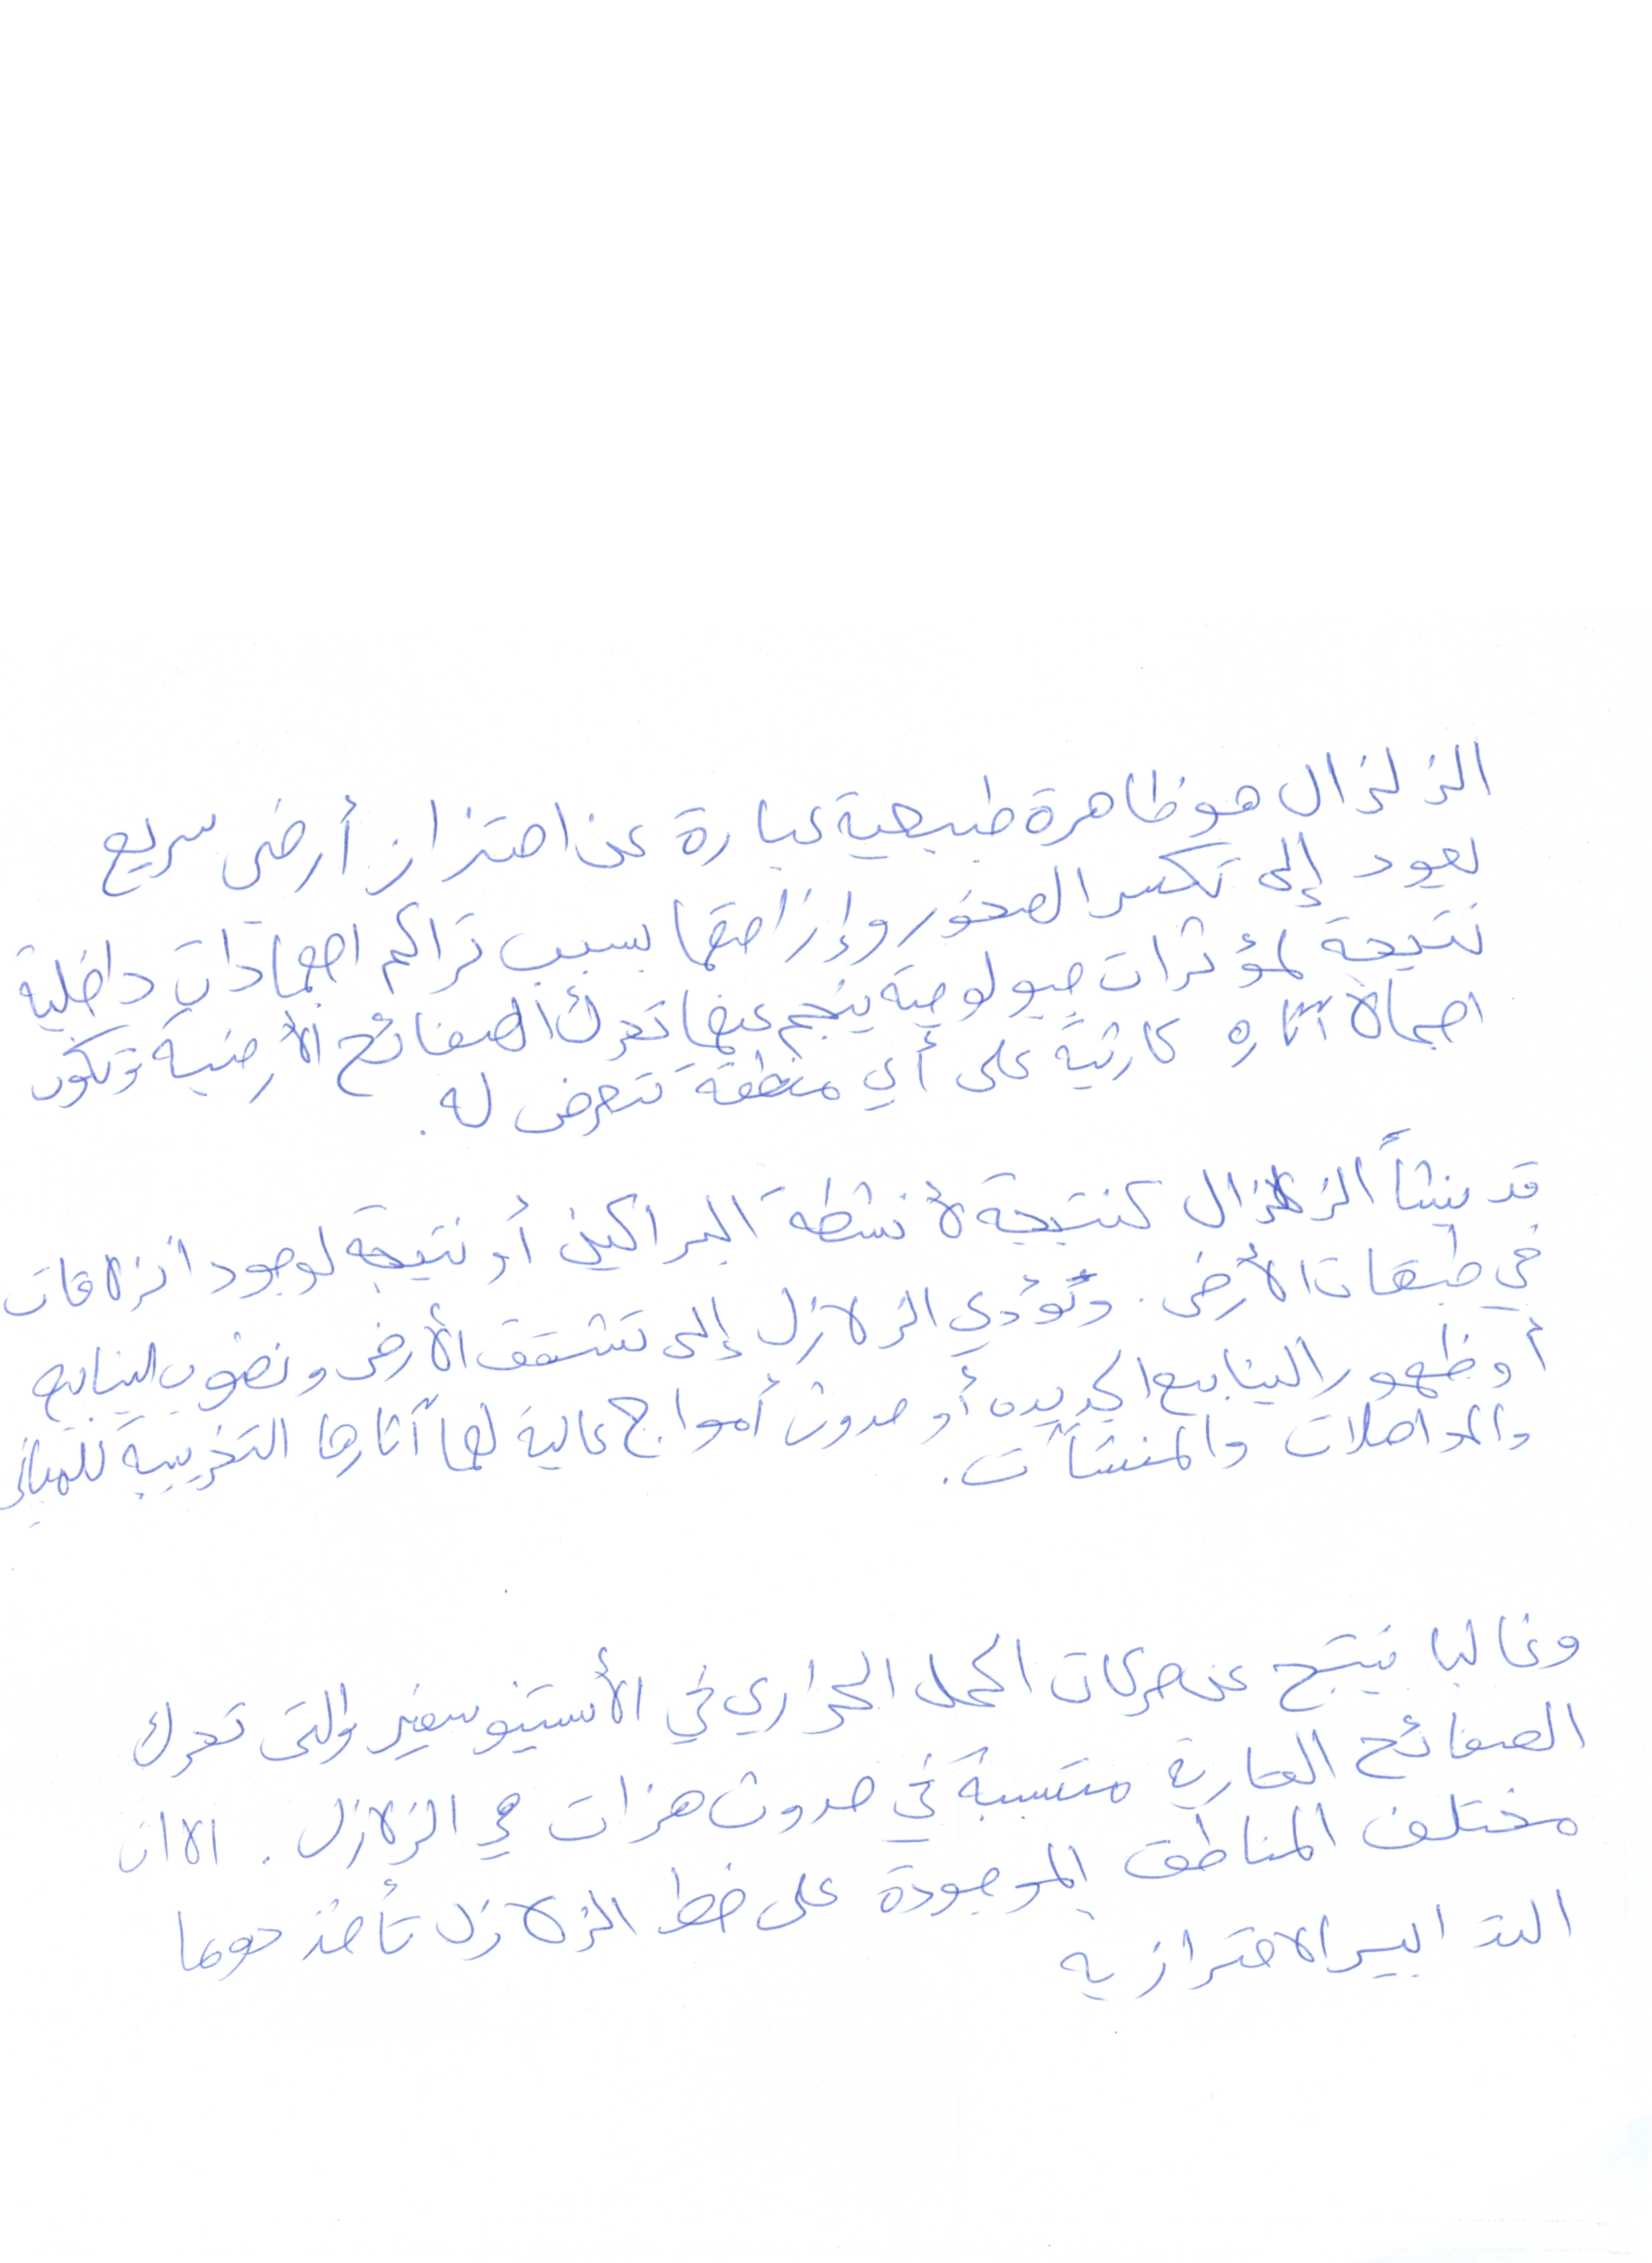 الزلزال هو ظاهرة طبيعية عبارة عن اهتزاز أرضي سريع
يعود إلى تكسر الصخور وإزاحتها بسبب تراكم اجهادات داخلية
نتيجة لمؤثرات جيولوجية ينجم عنها تحرك الصفائح الأرضية وتكون
اجمالا آثاره كارثية على أي منطقة تتعرض له.
قد ينشأ الزلزال كنتيجة لأنشطة البراكين أو نتيجة لوجود انزلاقات
في طبقات الأرض. وتؤدي الزلازل إلى تشقق الأرض ونضوب الينابيع
أو ظهور الينابيع الجديدة أو حدوث أمواج عالية لها آثارها التخريبية للمباني
والمواصلات والمنشآت.
وغالبا ينتج عن حركات الحمل الحراري في الأستينوسفير والتي تحرك
الصفائح القارية متسببة في حدوث هزات هي الزلازل. الا ان
مختلف المناطق الموجودة على خط الزلازل تأخذ دوما
التدابير الاحترازية